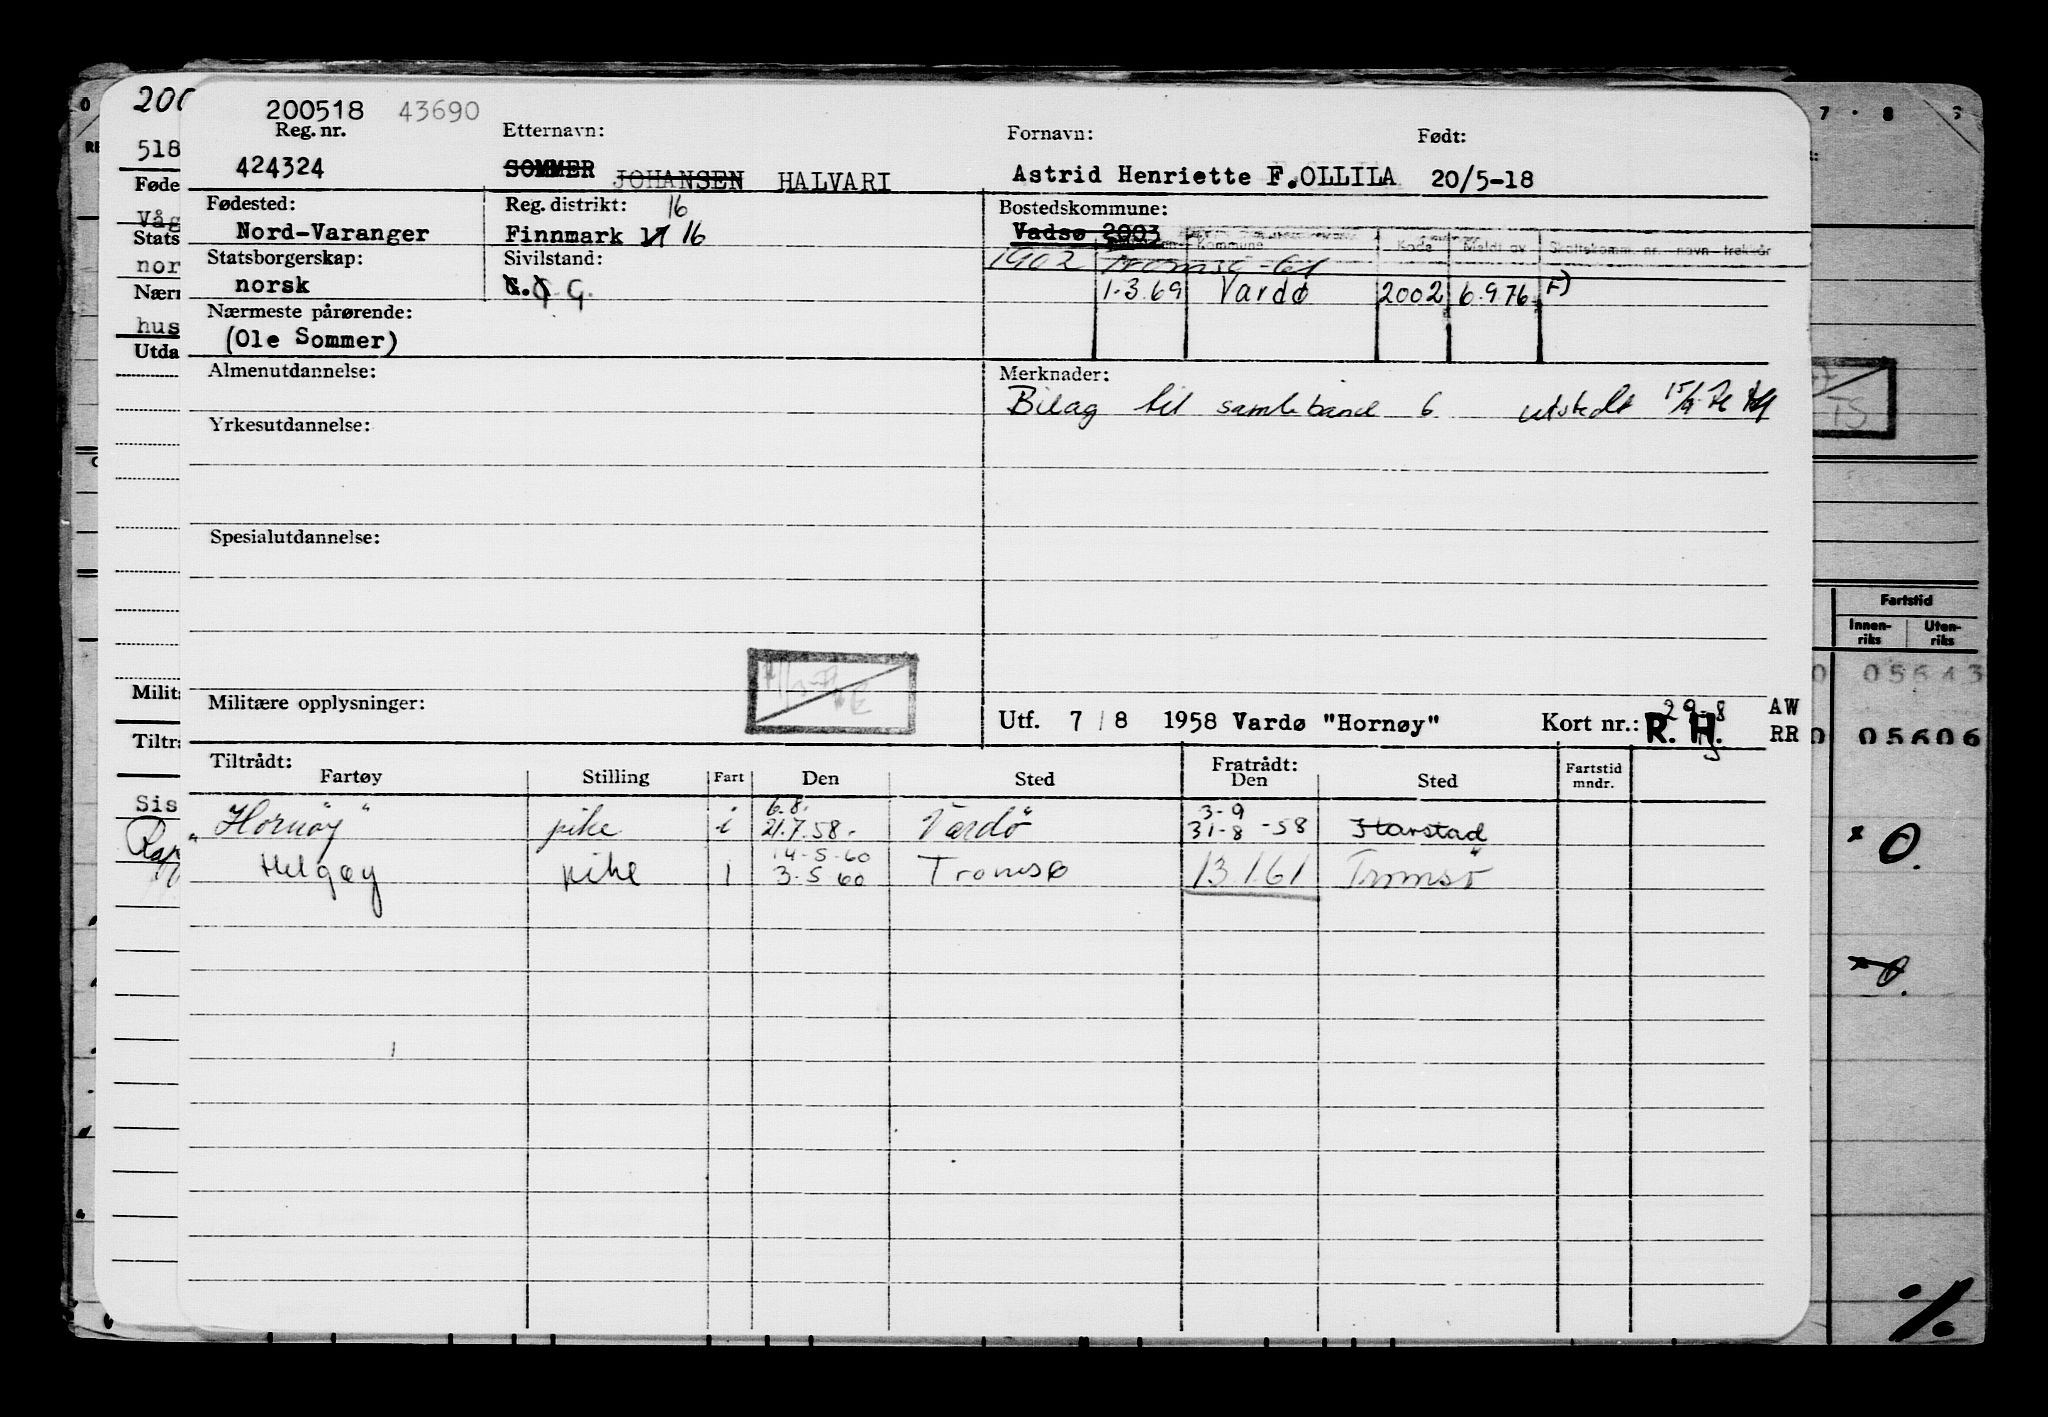 200518 43690
Reg. nr. Etternavn: Fornavn: Født:
424324 SOMMER JOHANSEN HALVARI Astrid Henriette F. OLLILA 20/5-18
Fødested: Reg. distrikt: 16 Bostedskommune:
Nord-Varanger Finnmark 17 16 Vadsø 2003
Kommune Kode Meldt av Skattekomm. nr. - navn - trekkår
Statsborgerskap: Sivilstand: 1902 Tromsø
norsk G. 1.3.69 Vardø 2002 6.9.76 F)
Nærmeste pårørende:
(Ole Sommer)
Almenutdannelse: Merknader:
Bilag til samleband 6 utstedt
Yrkesutdannelse:
Spesialutdannelse:
Militære opplysninger:
Utf. 7/8 1958 Vardø "Hornøy" Kort nr.: R. H. 29-8 AW
RR
Tiltrådt: Fratrådt:
Fartøy Stilling Fart Den Sted Den Sted Fartstid mndr.
6.8. 3-9
"Hornøy" pike i 21.7.58.- Vardø 31-8-58 Harstad
14-5-60
Helgøy pike i 3-5 60 Tromsø 13.1.61 Tromsø
200
518
Føde
Våg
Stats
nor
Nærm
hus
Utda
Milit
Tiltr
Sis
7 . 8
TS
Fartstid
Innen-riks Uten-riks
0 05643
0 05606
x 0.
x 0.
%.